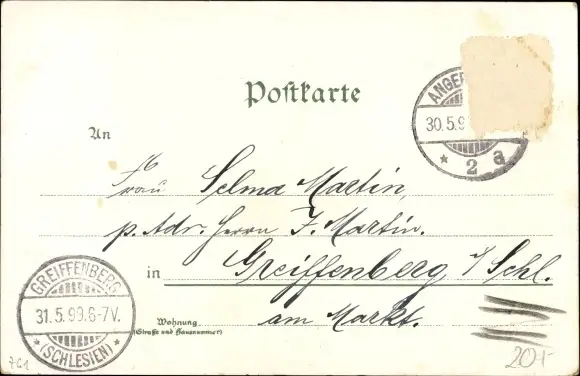 Postkarte
ANGER
30.5.9
* 2 a
An
Frau Selma Martin,
p. Adr. Herrn F. Martin.
in Greiffenberg i/Schl.
am Markt.
Wohnung
(Straße und Hausnummer)
GREIFFENBERG
31.5.99.6-7V.
* (SCHLESIEN) *
761
20,-